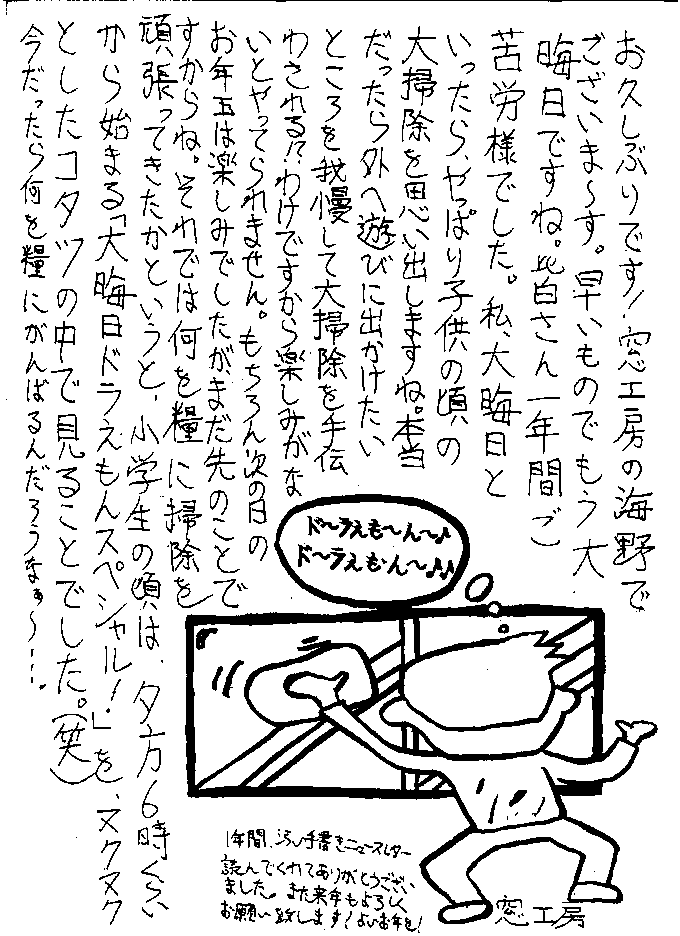 お久しぶりです！窓工房の海野で
ございま〜す。早いものでもう大
晦日ですね。皆さん一年間ご
苦労様でした。私、大晦日と
いったら、やっぱり子供の頃の
大掃除を思い出しますね。本当
だったら外へ遊びに出かけたい
ところを我慢して大掃除を手伝
わされる!?わけですから楽しみがな
いとやってられません。もちろん次の日の
お年玉は楽しみでしたがまだ先のことで
すからね。それでは何を糧に掃除を
頑張ってきたかというと、小学生の頃は、夕方6時くらい
から始まる「大晦日ドラえもんスペシャル！」を、ヌクヌク
としたコタツの中で見ることでした。（笑）
今だったら何を糧にがんばるんだろうなぁ〜…。
ド〜ラえも〜ん〜♪
ド〜ラえもん〜♪♪
1年間、手書きニュースレター
読んでくれてありがとうござい
ました。また来年もよろしく
お願い致します！よいお年を！
窓工房